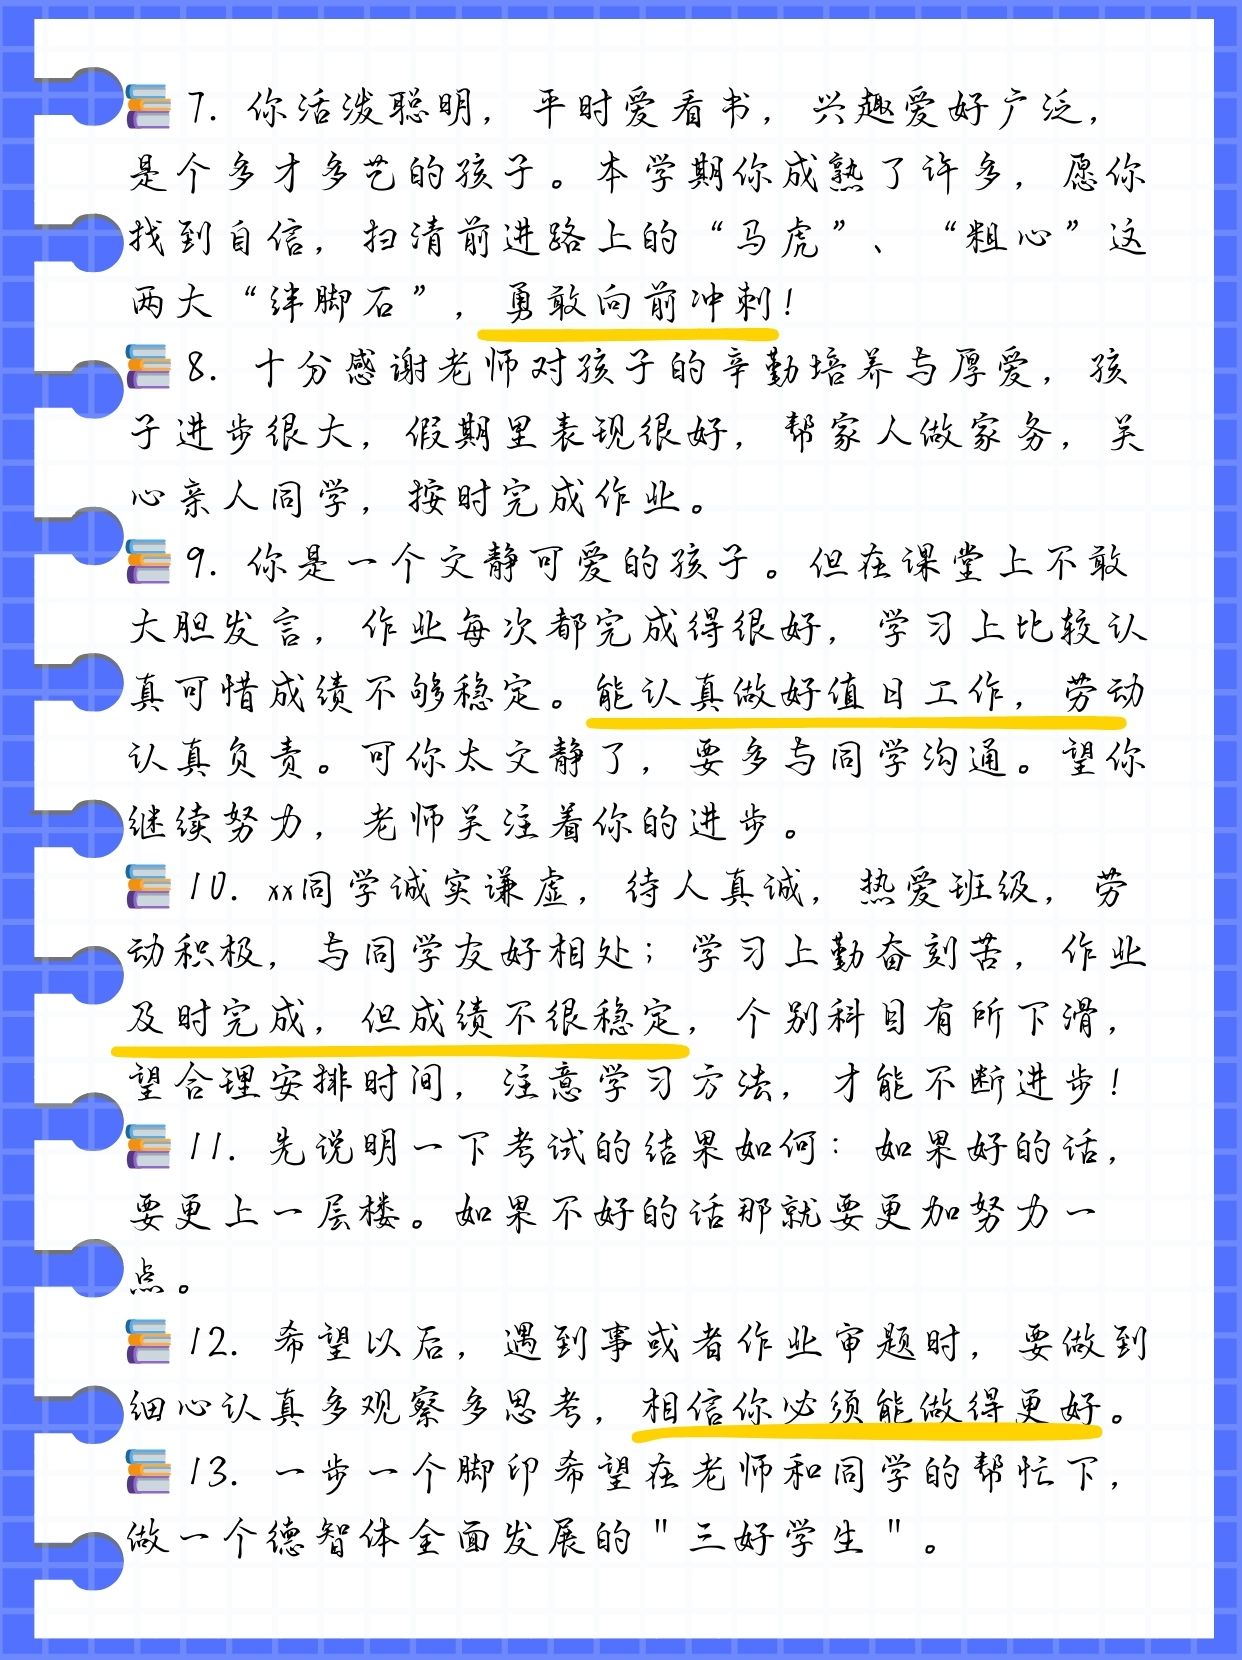 7. 你活泼聪明，平时爱看书，兴趣爱好广泛，
是个多才多艺的孩子。本学期你成熟了许多，愿你
找到自信，扫清前进路上的“马虎”、“粗心”这
两大“绊脚石”，勇敢向前冲刺！
8. 十分感谢老师对孩子的辛勤培养与厚爱，孩
子进步很大，假期里表现很好，帮家人做家务，关
心亲人同学，按时完成作业。
9. 你是一个文静可爱的孩子。但在课堂上不敢
大胆发言，作业每次都完成得很好，学习上比较认
真可惜成绩不够稳定。能认真做好值日工作，劳动
认真负责。可你太文静了，要多与同学沟通。望你
继续努力，老师关注着你的进步。
10. xx同学诚实谦虚，待人真诚，热爱班级，劳
动积极，与同学友好相处；学习上勤奋刻苦，作业
及时完成，但成绩不很稳定，个别科目有所下滑，
望合理安排时间，注意学习方法，才能不断进步！
11. 先说明一下考试的结果如何：如果好的话，
要更上一层楼。如果不好的话那就要更加努力一
点。
12. 希望以后，遇到事或者作业审题时，要做到
细心认真多观察多思考，相信你必须能做得更好。
13. 一步一个脚印希望在老师和同学的帮忙下，
做一个德智体全面发展的"三好学生"。